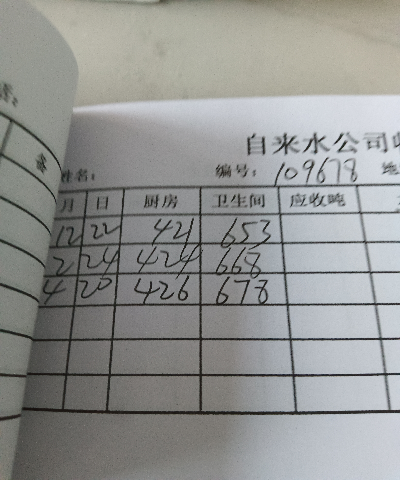 备
自来水公司
姓名: 编号: 109678
月 日 厨房 卫生间 应收吨
12 22 421 653
2 24 424 668
4 20 426 678